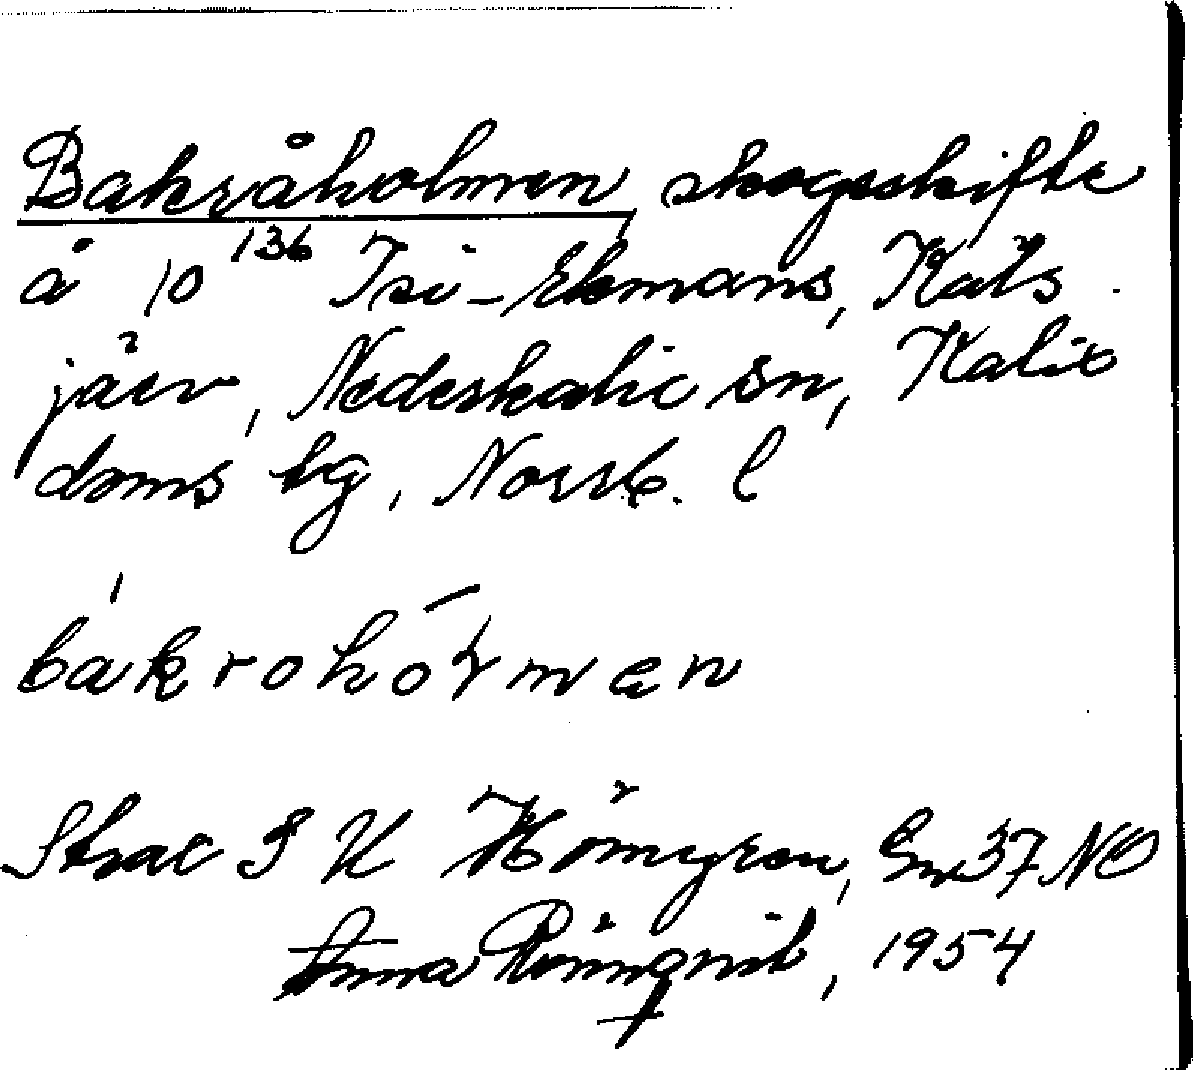 Bakråholmen, skogsskifte
å 10 136 Isi-Ekmans, Käts
järv, Nederkalix sn, Kalix
doms tg, Norrb. l
bakrohoɽmæn
Strac S V Hömyren, 37 NO
Anna Rönnqvist, 1954